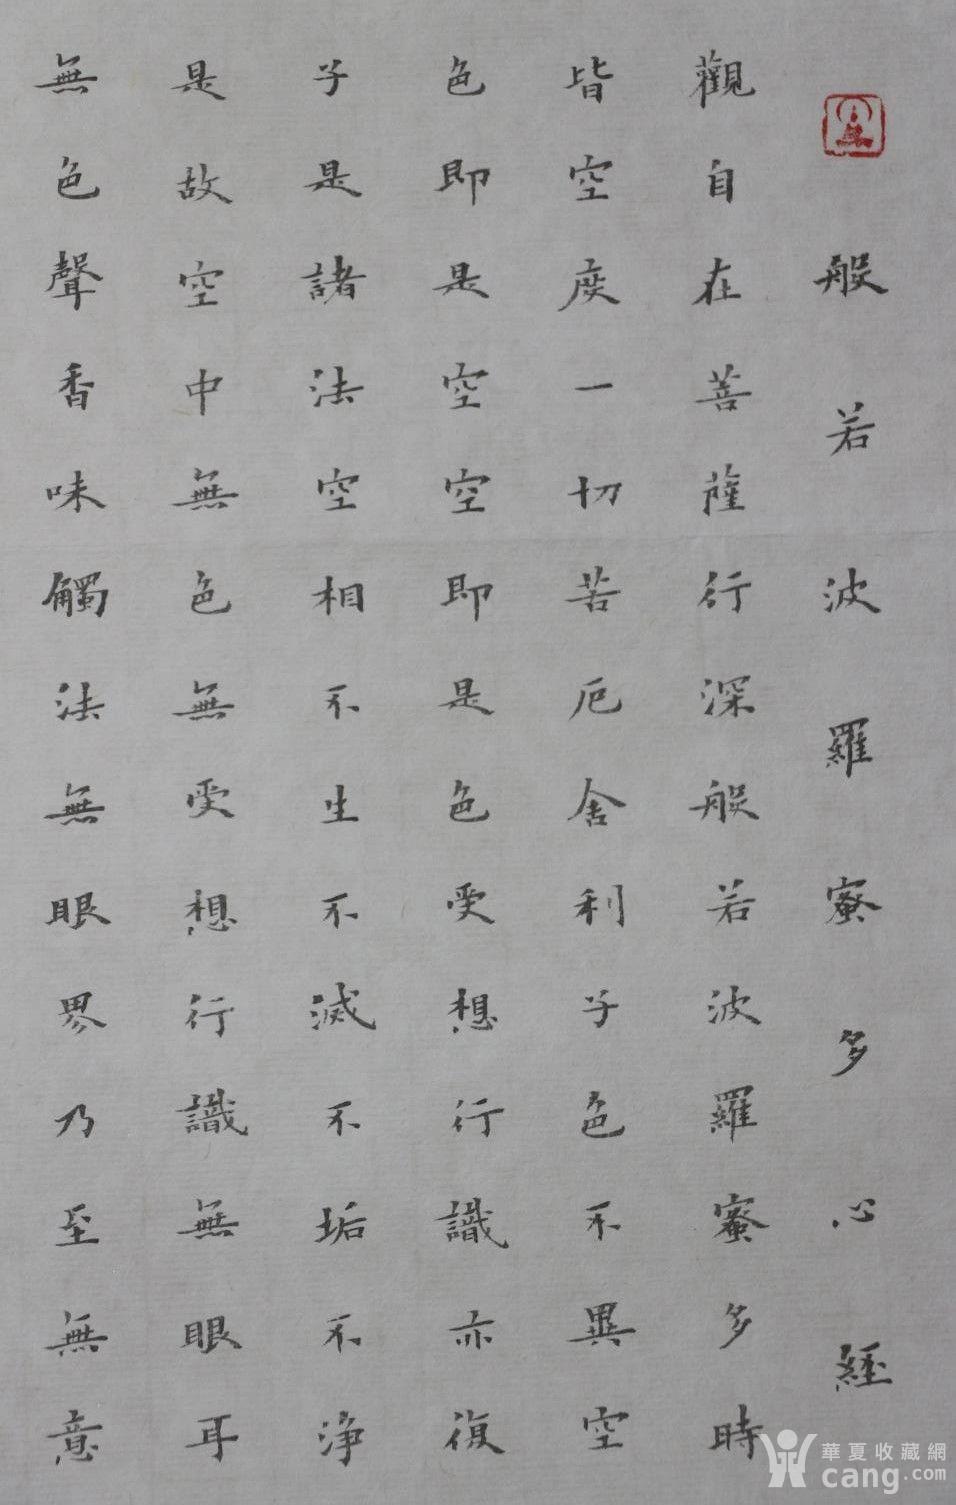 般若波羅蜜多心經
觀自在菩薩行深般若波羅蜜多時
皆空度一切苦厄舍利子色不異空
色即是空空即是色受想行識亦復
子是諸法空相不生不滅不垢不淨
是故空中無色無受想行識無眼耳
無色聲香味觸法無眼界乃至無意
華夏收藏網
cang.com